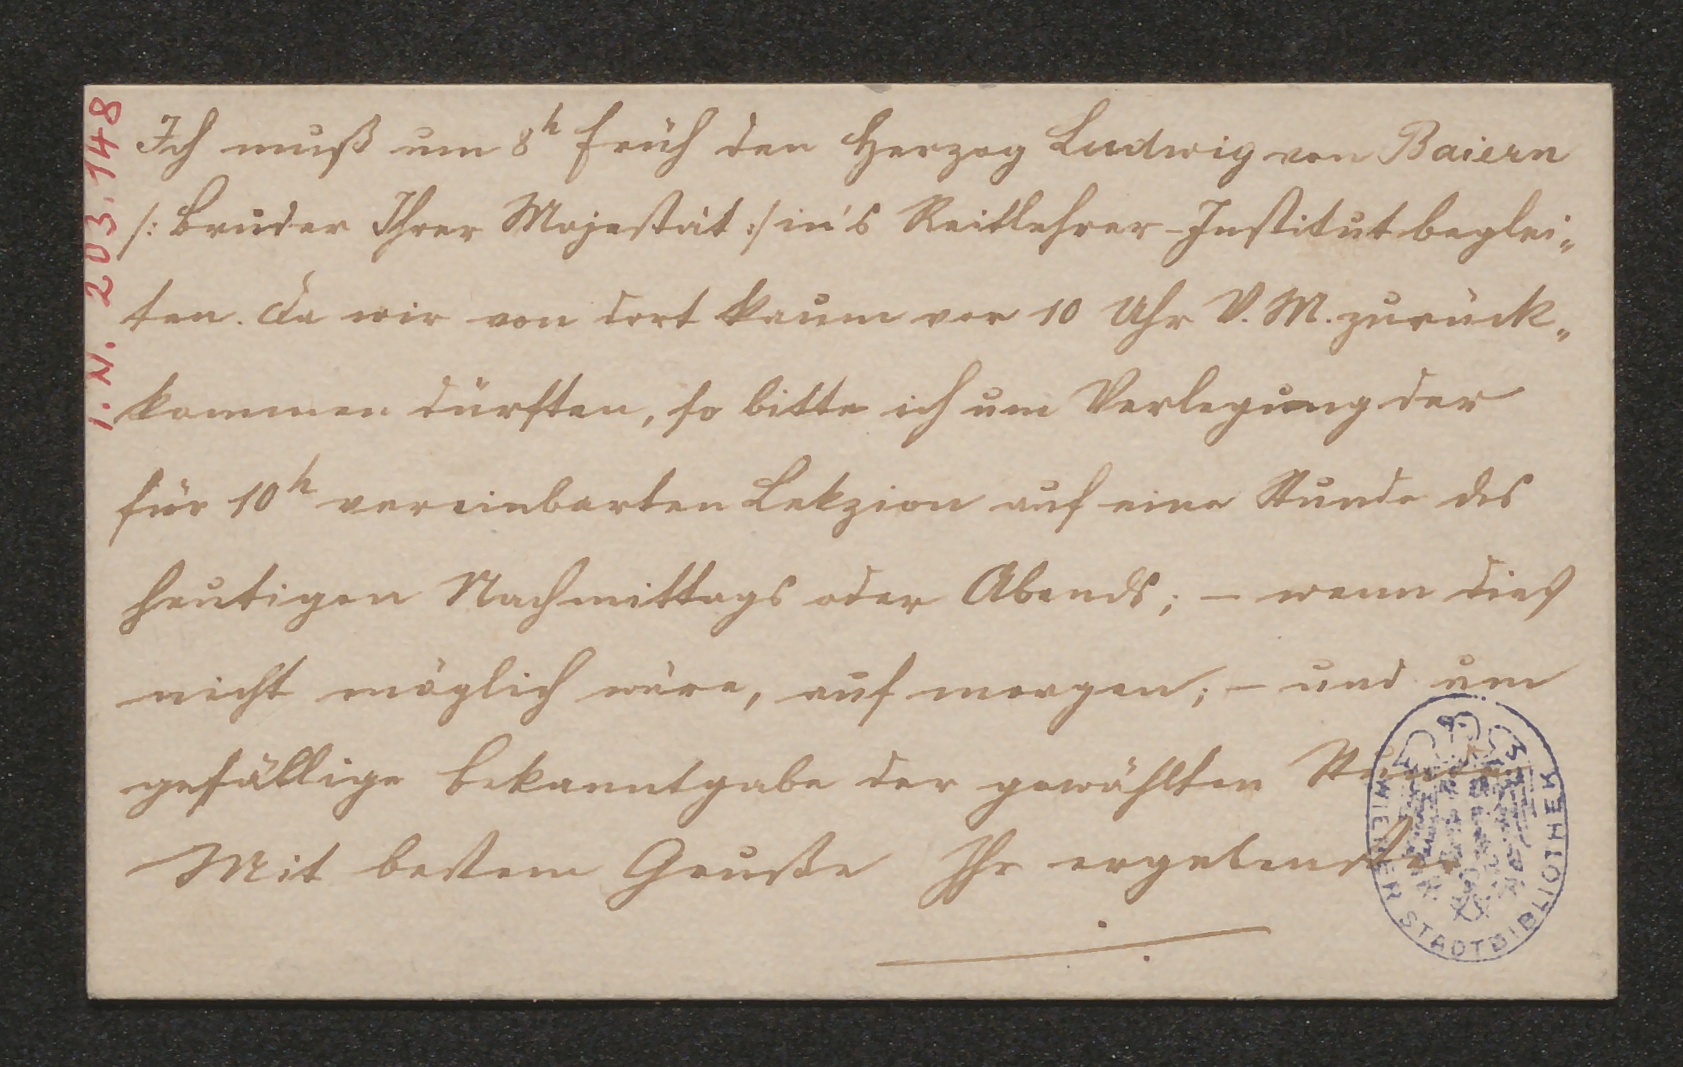 Ich muß um 8h früh den Herzog Ludwig von Baiern
/: Bruder Ihrer Majestät :/ in's Reitlehrer-Institut beglei„
ten. Da wir von dort kaum vor 10 Uhr V. M. zurück„
kommen dürften, so bitte ich um Verlegung der
für 10h vereinbarten Lekzion auf eine Stunde des
heutigen Nachmittags oder Abends; – wenn dieß
nicht möglich wäre, auf morgen; – und um
gefällige Bekanntgabe der gewählten Stunde.
Mit bestem Gruße Ihr ergebenster
I. N. 203.148
WIENER STADTBIBLIOTHEK